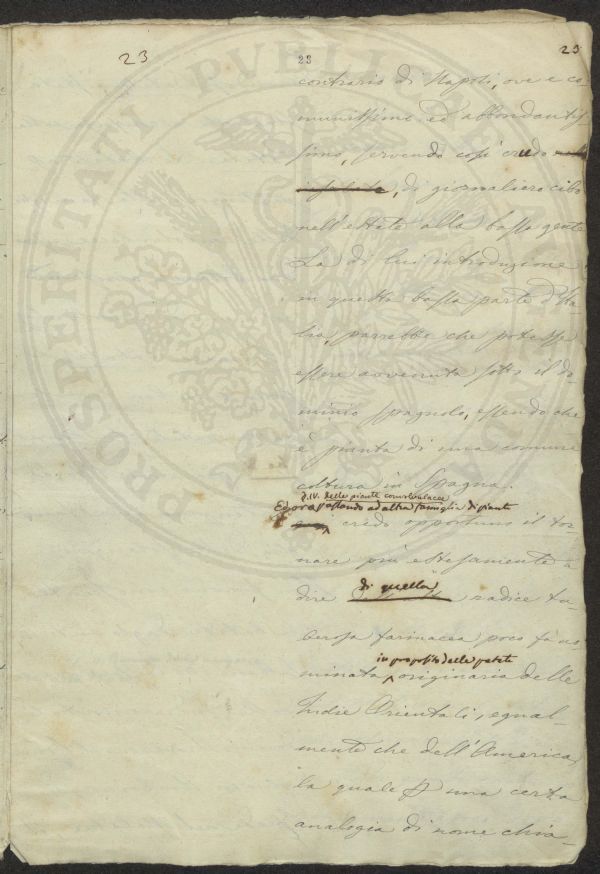 23
23
23
PROSPERITATI PVBLICAE AVGENDAE
contrario di Napoli, ove e co-
munissimo ed abbondantis
simo, servendo così credo
, di giornaliero cibo
nell'estate alla bassa gente
La di lui introduzione
in questa bassa parte d'Ita
lia, parrebbe che potesse
essere avvenuta sotto il do-
minio spagnolo, essendo che
è pianta di una comune
coltura in Spagna.
§. IV. delle piante convolvulacee
Ed ora passando ad altra famiglia di piante
credo opportuno il tor-
nare più estesamente a
di quella
dire radice tu-
berosa farinacea poco fa no
in proposito delle patate
minata originaria delle
Indie Orientali, egual-
mente che dell'America,
la quale p una certa
analogia di nome chia-